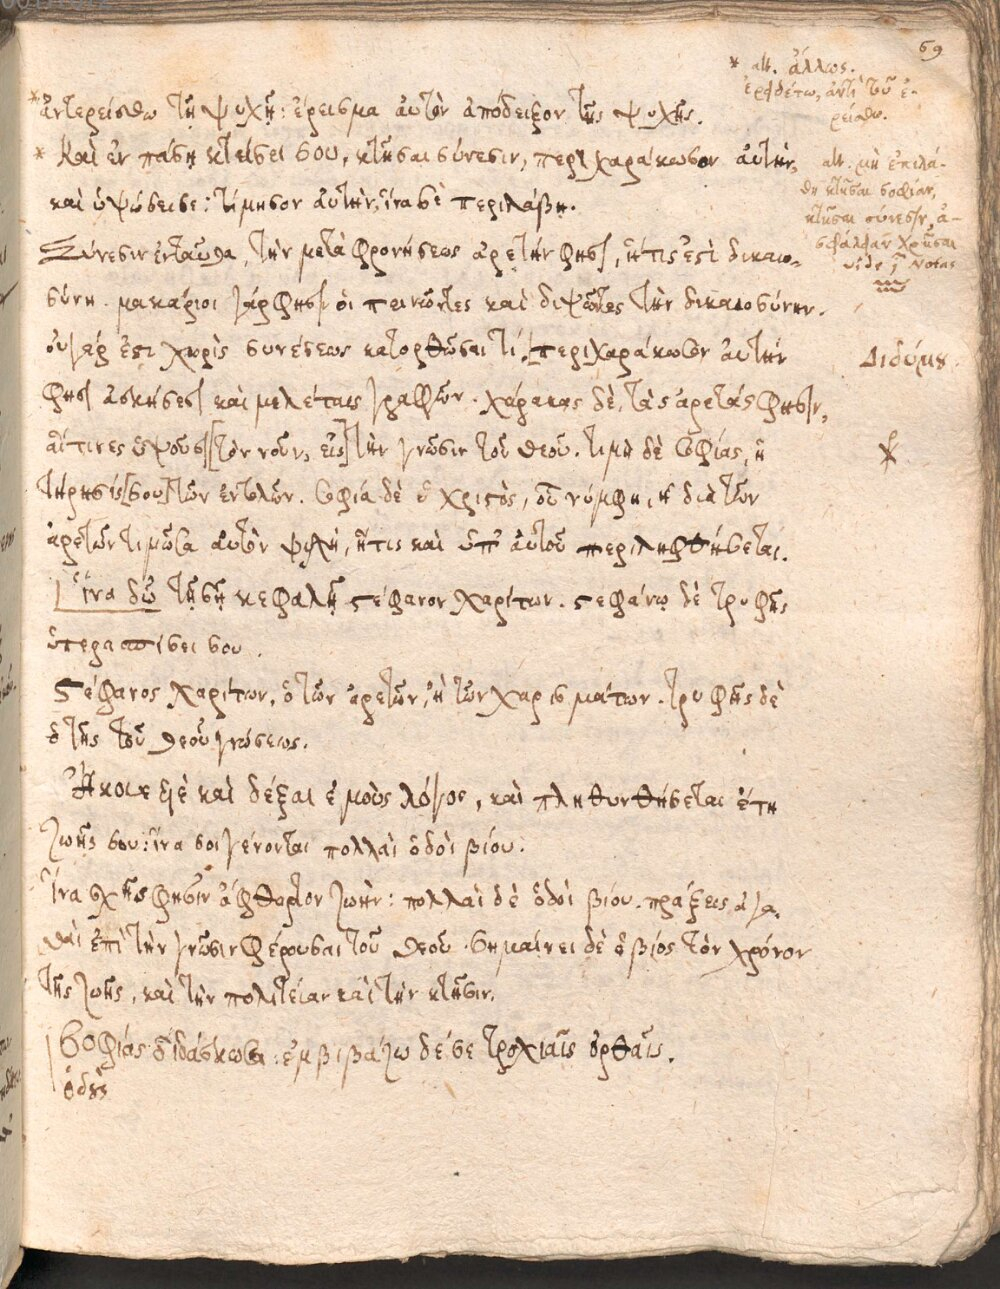 69
* alt. ἄλλως.
ἐρηδέτω, ἀντὶ τοῦ ἐ-
ρείδω.
*ἀντερείσθω τῇ ψυχῇ: ἔρεισμα αὐτὸν ἀπόδειξον τῆς ψυχῆς.
* Καὶ ἐν πάσῃ κτήσει σου, κτῆσαι σύνεσιν, περιχαράκωσον αὐτὴν,
καὶ ὑψώσει σε: τίμησον αὐτὴν, ἵνα σὲ περιλάβῃ.
alt. μὴ ἐπιλά-
θῃ κτῆσαι σοφίαν,
κτῆσαι σύνεσιν,
Σύνεσιν ἐνταῦθα, τὴν μετὰ φρονήσεως ἀρετήν φησι, ἥτις ἐστὶ δικαιο-
σύνη. μακάριοι γάρ φησι οἱ πεινῶντες καὶ διψῶντες τὴν δικαιοσύνην.
οὐ γάρ ἐστι χωρὶς συνέσεως κατορθῶσαι τί. περιχαράκωσον αὐτήν
Διδύμου
φησι ἀσκήσεσι καὶ μελέταις γραφῶν. χάρακας δὲ, τὰς ἀρετάς φησιν,
αἵτινες ὑψοῦσι [τὸν νοῦν, εἰς] τὴν γνῶσιν τοῦ θεοῦ. τιμὴ δὲ σοφίας, ἡ
τήρησις [σου] τῶν ἐντολῶν. σοφία δὲ ὁ χριστὸς, οὗ νύμφη, ἡ διὰ τῶν
ἀρετῶν τιμῶσα αὐτὸν ψυχή, ἥτις καὶ ὑπ' αὐτοῦ περιληφθήσεται.
ἵνα δῷ τῇ σῇ κεφαλῇ στέφανον χαρίτων. στεφάνῳ δὲ τρυφῆς
ὑπερασπίσει σου.
Στέφανος χαρίτων, ὁ τῶν ἀρετῶν, ἢ τῶν χαρισμάτων. τρυφῆς δὲ
ὁ τῆς τοῦ θεοῦ γνώσεως.
Ἄκουε υἱὲ καὶ δέξαι ἐμοὺς λόγους, καὶ πληθυνθήσεται ἔτη
ζωῆς σου: ἵνα σοι γένονται πολλαὶ ὁδοὶ βίου.
Ἵνα σχῇς φησιν ἄφθαρτον ζωήν: πολλαὶ δὲ ὁδοὶ βίου. πράξεις ἀγα-
θαὶ ἐπὶ τὴν γνῶσιν φέρουσαι τοῦ θεοῦ. σημαίνει δὲ ὁ βίος τὸν χρόνον
τῆς ζωῆς, καὶ τὴν πολιτείαν καὶ τὴν κτῆσιν.
Ὁδοὺς σοφίας διδάσκω σε: ἐμβιβάζω δέ σε τροχιαῖς ὀρθαῖς.